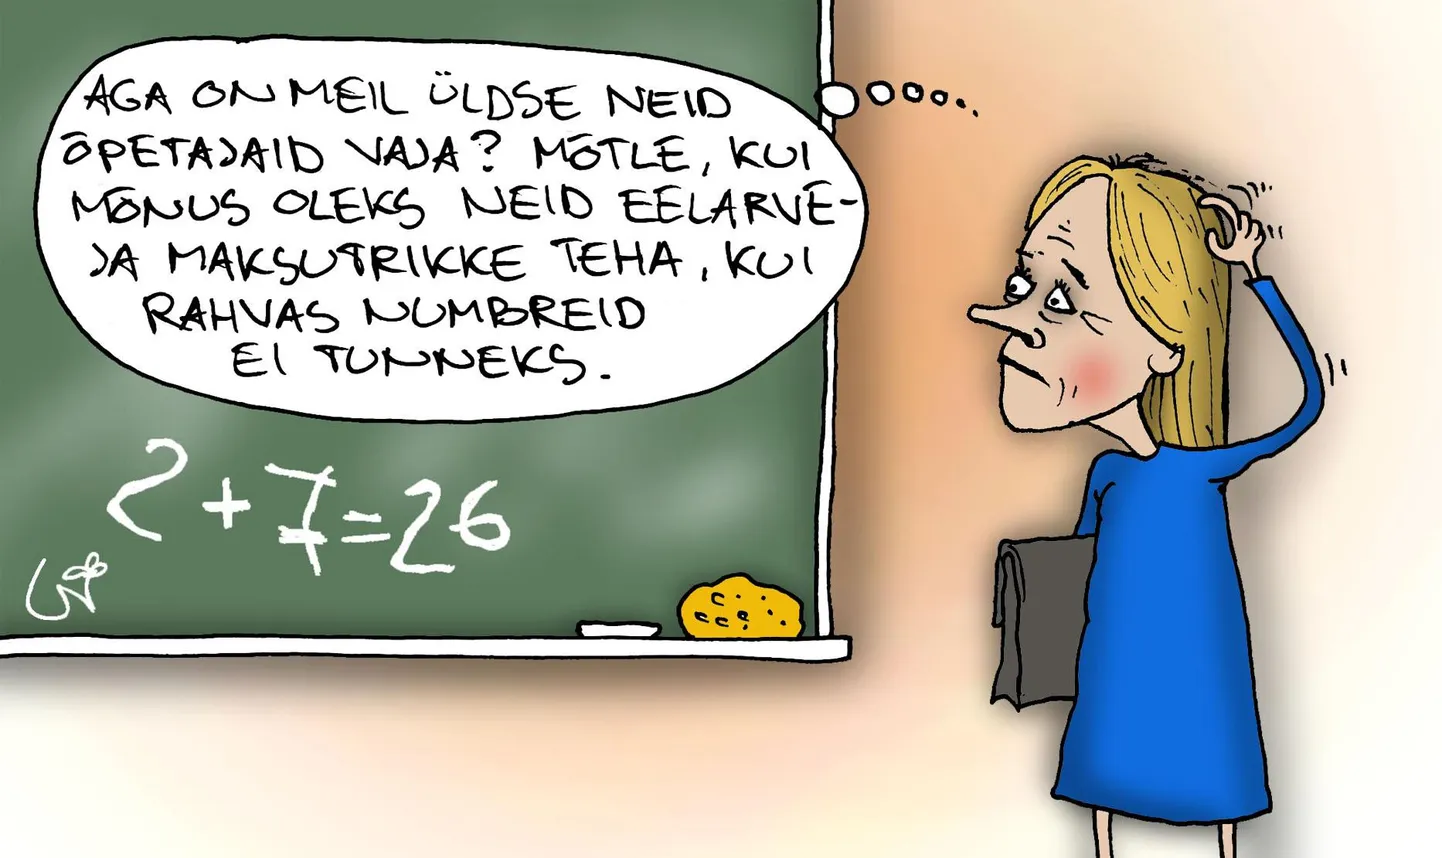 AGA ON MEIL ÜLDSE NEID
ÕPETAJAID VAJA? MÕTLE, KUI
MÕNUS OLEKS NEID EELARVE-
JA MAKSUTRIKKE TEHA, KUI
RAHVAS NUMBREID
EI TUNNEKS.
2+7=26